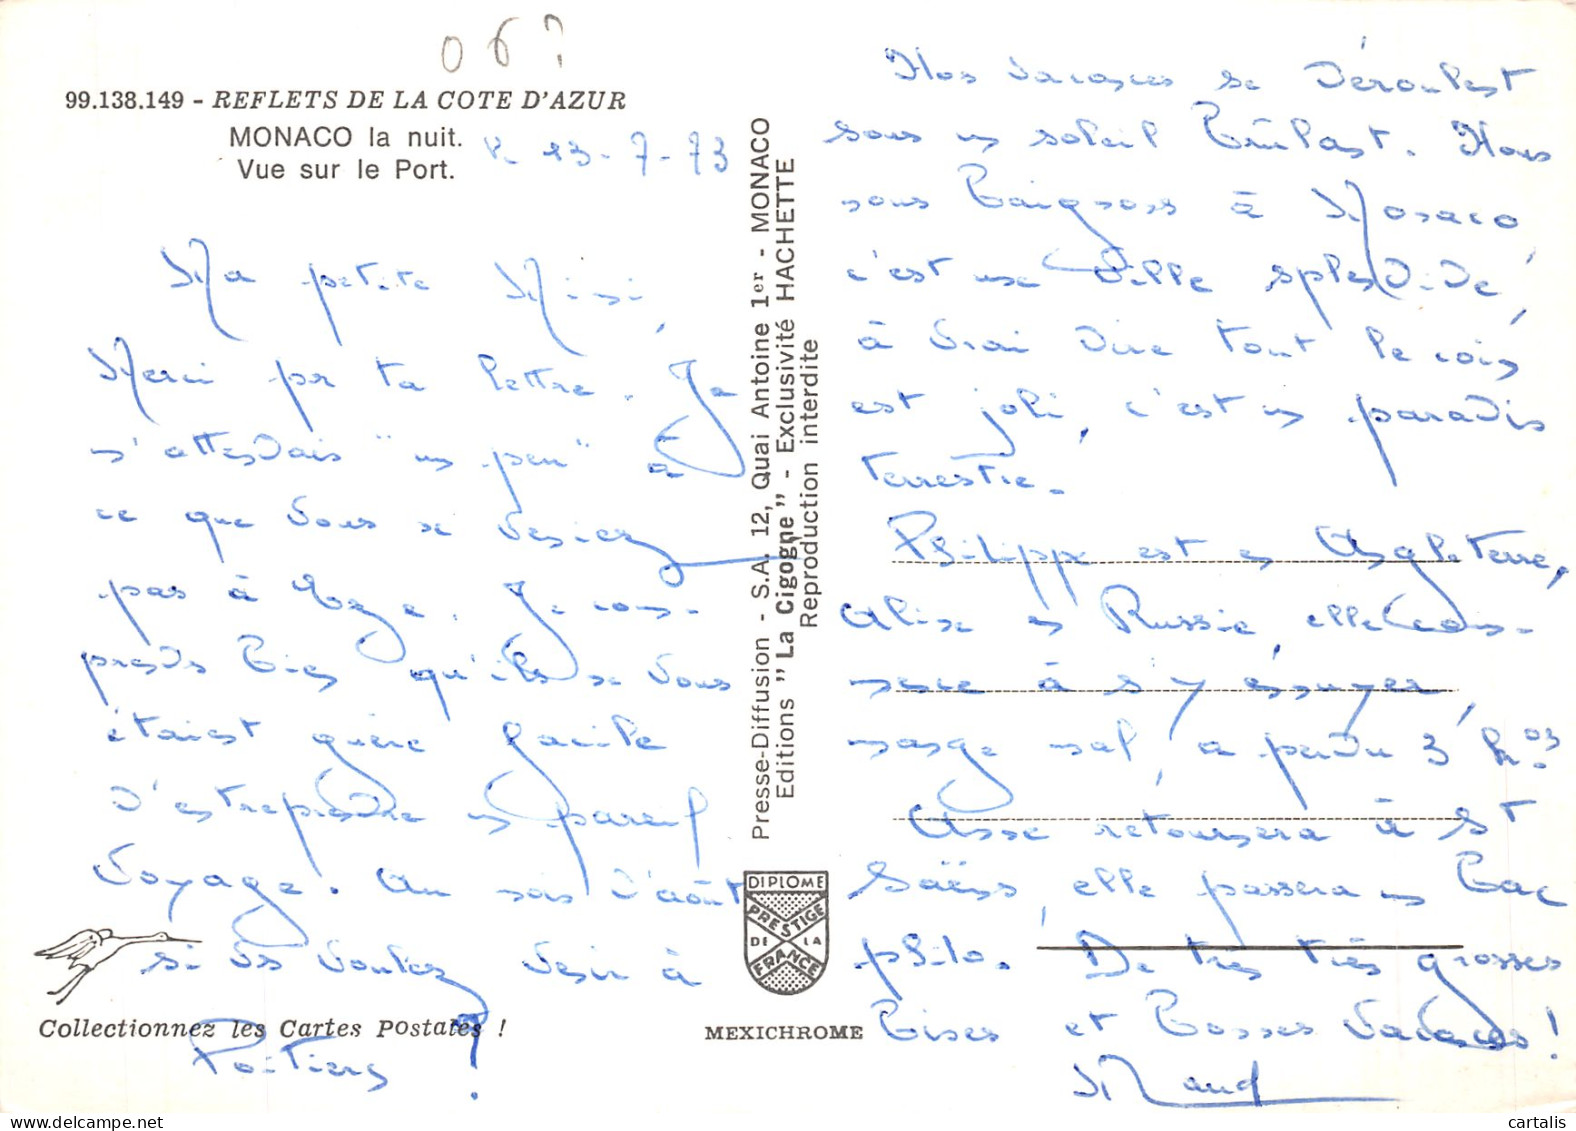 06?
99.138.149 - REFLETS DE LA COTE D'AZUR
MONACO la nuit.
Vue sur le Port.
le 23-7-73
Ma petite Mimi,
Merci pr ta lettre. Je
m'attendais "un peu" à
ce que vous ne veniez
pas à . Je com-
prends bien qu'ils ne vous
étaient guère facile
d'entreprendre un pareil
voyage. Au mois d'août
si vs voulez venir à
Poitiers !
Collectionnez les Cartes Postales !
Presse-Diffusion - S.A. 12, Quai Antoine 1er - MONACO
Editions "La Cigogne" - Exclusivité HACHETTE
Reproduction interdite
DIPLOME
PRESTIGE
DE LA
FRANCE
MEXICHROME
Nos vacances se déroulent
sous un soleil brûlant. Nous
nous baignons à Monaco,
c'est une ville splendide,
à vrai dire tout le coin
est joli, c'est un paradis
terrestre.
Philippe est en Angleterre,
Aline en Russie, elle com-
mence à s'y ennuyer,
mange mal, a perdu 3 kgs
Anne retournera à St
Saëns, elle passera un bac
philo. De très très grosses
bises et bonnes vacances !
Maud
cartalis